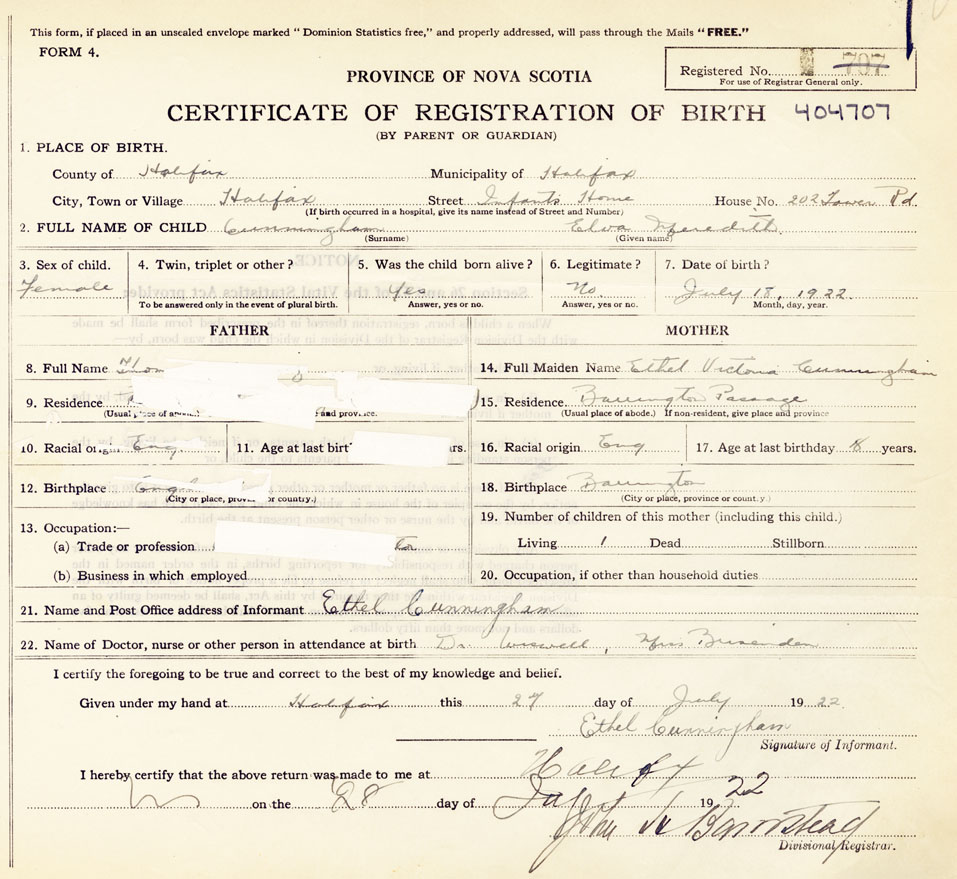 This form, if placed in an unsealed envelope marked "Dominion Statistics free," and properly addressed, will pass through the Mails "FREE."
FORM 4.
Registered No. 707
For use of Registrar General only.
PROVINCE OF NOVA SCOTIA
CERTIFICATE OF REGISTRATION OF BIRTH 404707
(BY PARENT OR GUARDIAN)
1. PLACE OF BIRTH.
County of Halifax Municipality of Halifax
City, Town or Village Halifax Street Infants Home House No. 202 Tower Rd.
(If birth occurred in a hospital, give its name instead of Street and Number)
2. FULL NAME OF CHILD Cunningham Elva Meredith
(Surname) (Given name)
3. Sex of child. 4. Twin, triplet or other? 5. Was the child born alive? 6. Legitimate? 7. Date of birth?
Female Yes No July 18, 1922
To be answered only in the event of plural birth. Answer, yes or no. Answer, yes or no. Month, day, year.
FATHER MOTHER
8. Full Name 14. Full Maiden Name Ethel Victoria Cunningham
9. Residence 15. Residence Barrington Passage
(Usual place of and province. (Usual place of abode.) If non-resident, give place and province
10. Racial origin Eng 11. Age at last birt rs. 16. Racial origin Eng 17. Age at last birthday years.
12. Birthplace 18. Birthplace Barrington
(City or place, provi or country.) (City or place, province or county.)
13. Occupation:— 19. Number of children of this mother (including this child.)
(a) Trade or profession Living 1 Dead Stillborn
(b) Business in which employed 20. Occupation, if other than household duties
21. Name and Post Office address of Informant Ethel Cunningham
22. Name of Doctor, nurse or other person in attendance at birth Dr. Wiswell, Miss
I certify the foregoing to be true and correct to the best of my knowledge and belief.
Given under my hand at Halifax this 27 day of July 1922.
Ethel Cunningham
Signature of Informant.
I hereby certify that the above return was made to me at Halifax
on the 28 day of July 1922
John A Barnstead
Divisional Registrar.